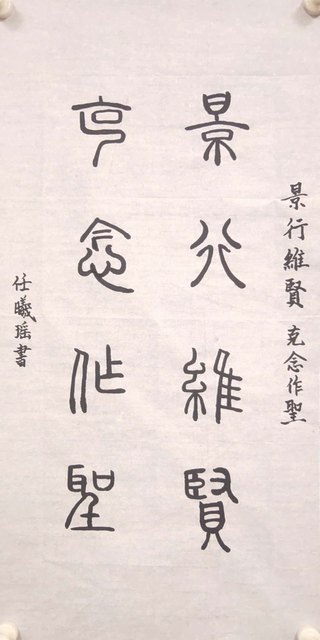 景行維賢 克念作聖
景行維賢
克念作聖
任曦瑶書